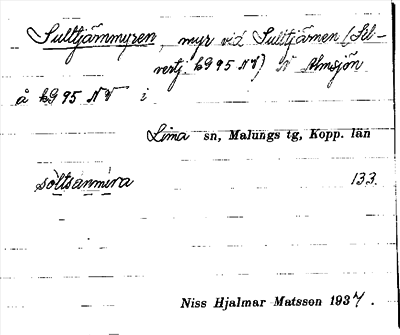 Sulltjärnmyren, myr vid Sulltjärnen (Sil-
vertj. kG 95 NV) N Almsjön
å kG 95 NV i
Lima sn, Malungs tg, Kopp. län
sòltsànmira 133.
Niss Hjalmar Matsson 1937.